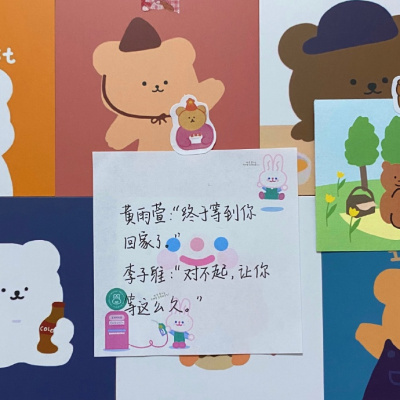 st
黄雨萱：“终于等到你
回家了。”
李子维：“对不起，让你
等这么久。”
Cola